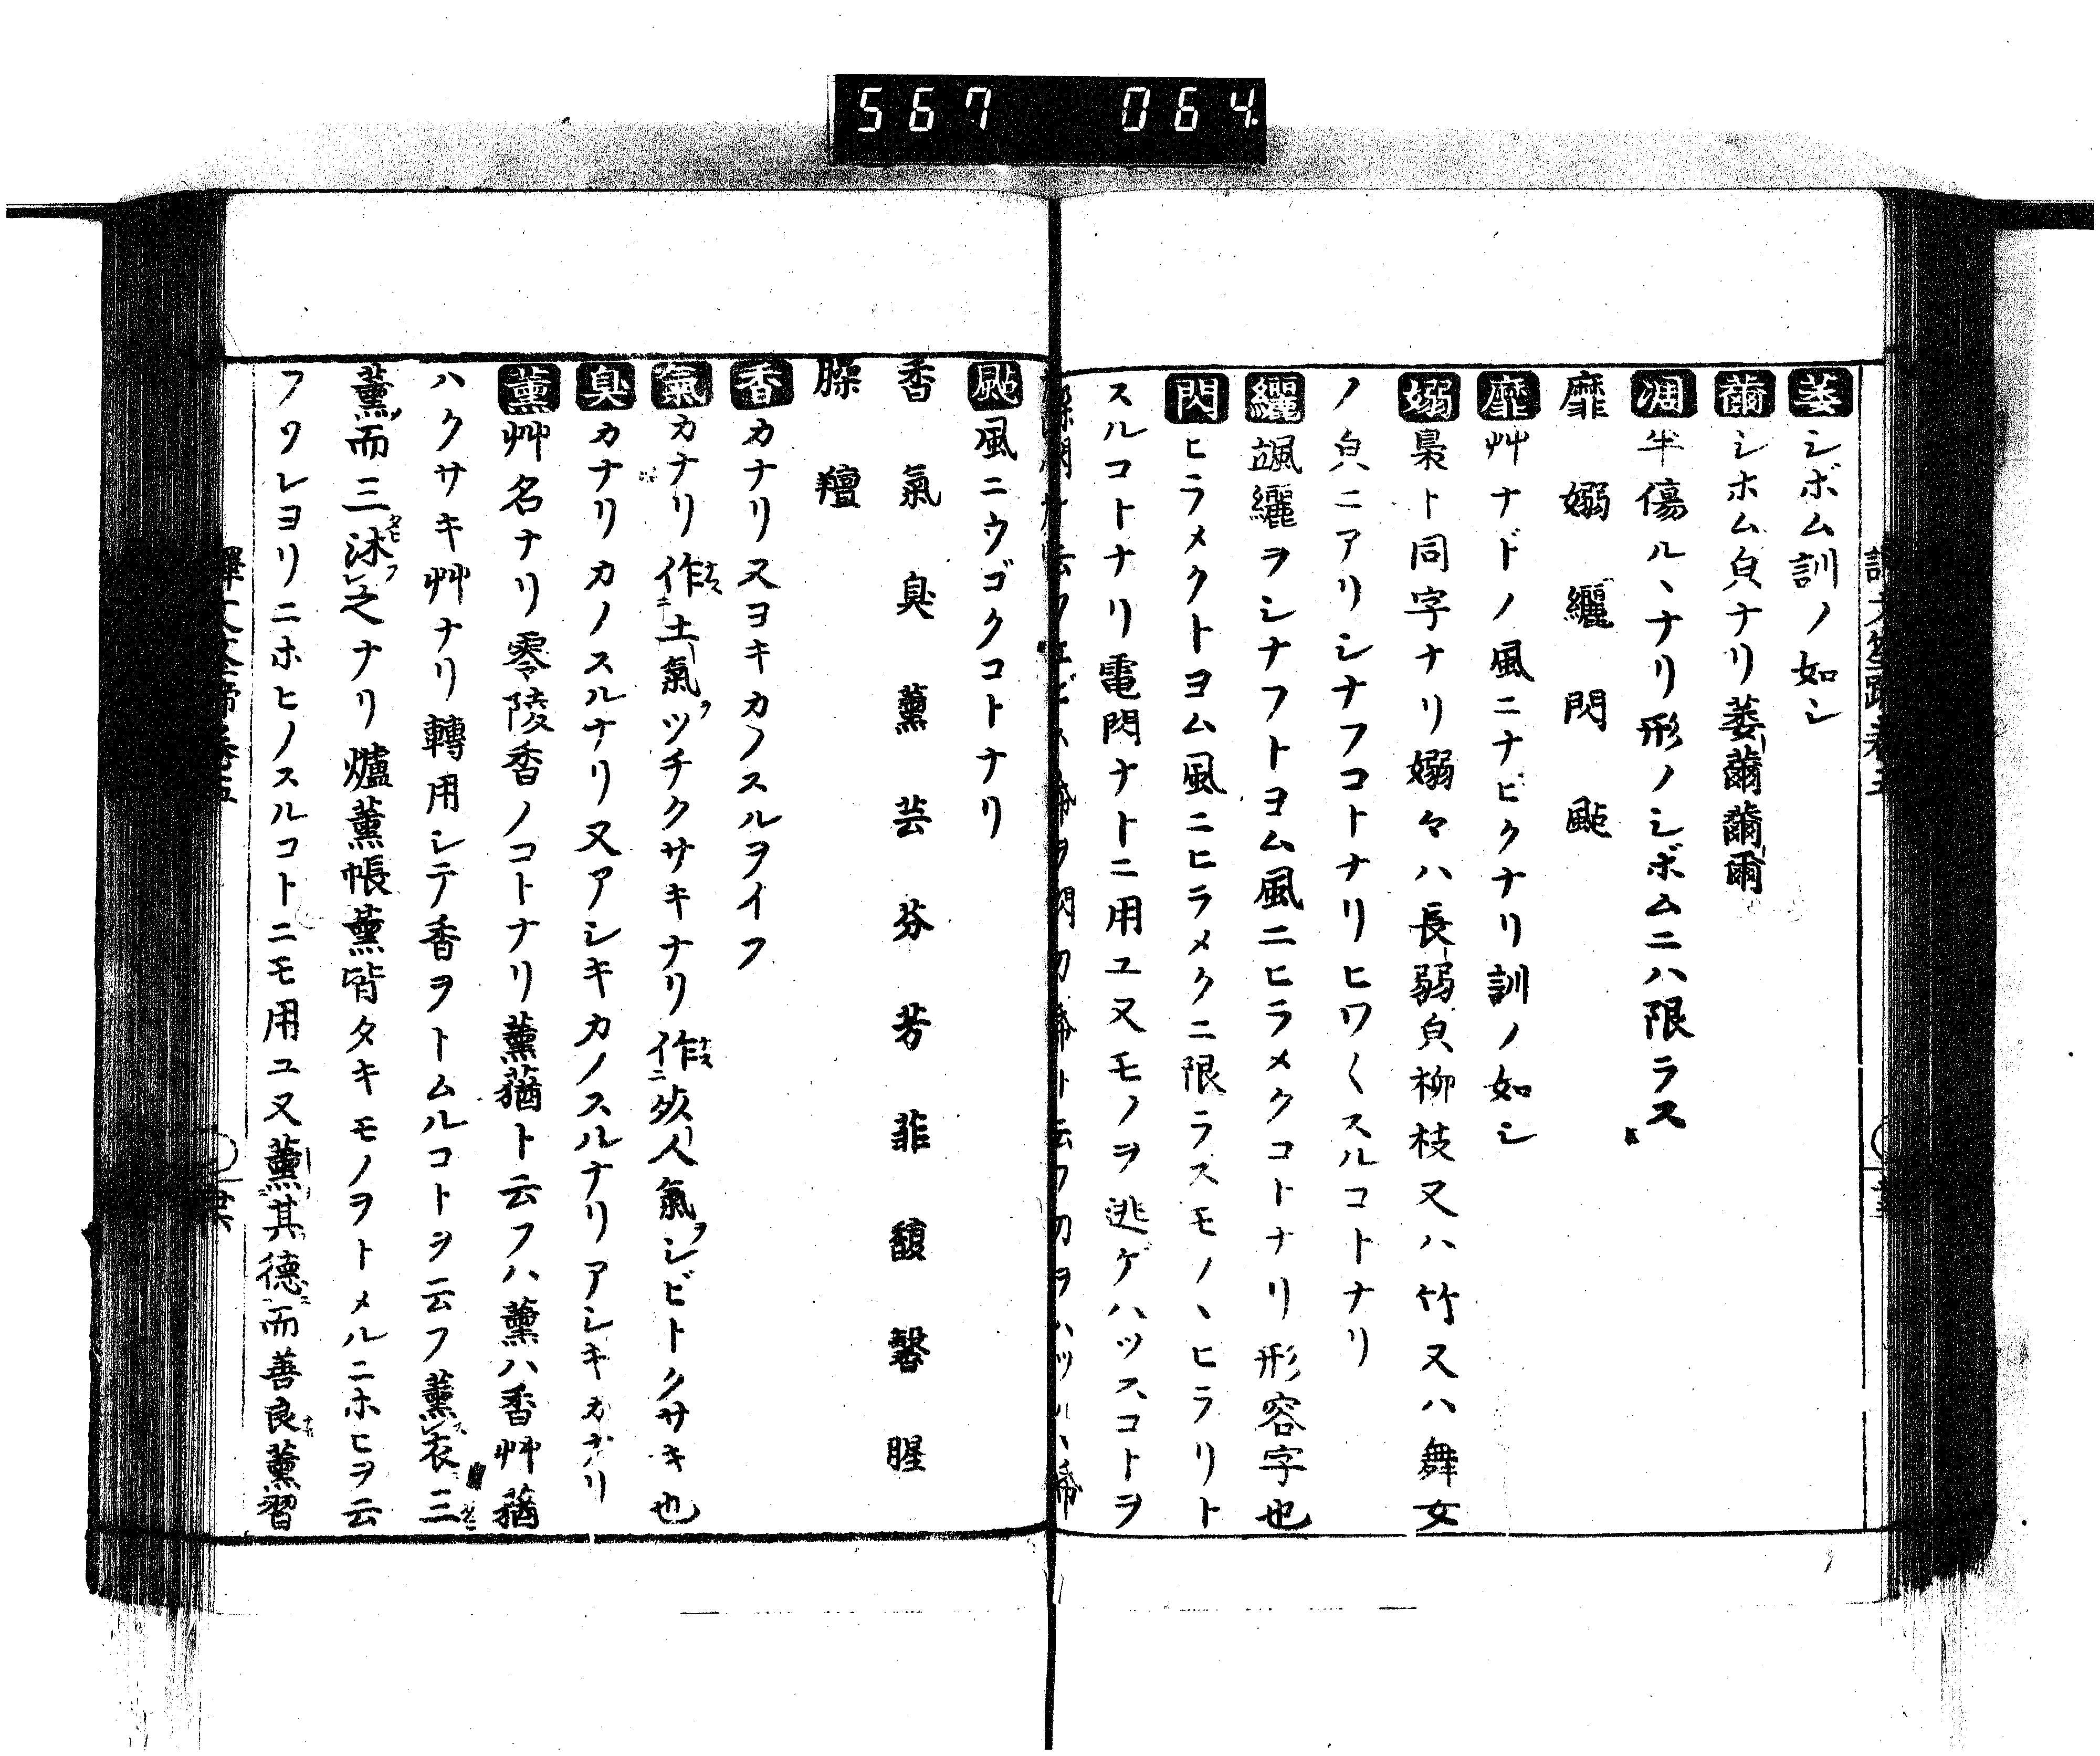 567 064
萎シボム訓ノ如シ
薾シホム皃ナリ萎薾薾爾
凋半傷ルヽナリ形ノシボムニハ限ラス
靡 嫋 纚 閃 颭
靡艸ナドノ風ニナビクナリ訓ノ如シ
嫋裊ト同字ナリ嫋々ハ長弱皃柳枝又ハ竹又ハ舞女
ノ皃ニアリシナフコトナリヒワ〱スルコトナリ
纚颯纚ヲシナフトヨム風ニヒラメクコトナリ形容字也
閃ヒラメクトヨム風ニヒラメクニ限ラスモノヽヒラリト
スルコトナリ電閃ナトニ用ユ又モノヲ逃ゲハツスコトヲ
颭風ニウゴクコトナリ
香 氣 臭 薰 芸 芬 芳 菲 馥 馨 腥
臊 羶
香カナリ又ヨキカノスルヲイフ
氣カナリ作土氣ツチクサキナリ作死人氣シビトクサキ也
臭カナリカノスルナリ又アシキカノスルナリアシキカナリ
薰艸名ナリ零陵香ノコトナリ薰蕕ト云フハ薰ハ香艸蕕
ハクサキ艸ナリ轉用シテ香ヲトムルコトヲ云フ薰衣三
薰而三沐之ナリ爐薰帳薰皆タキモノヲトメルニホヒヲ云
フワレヨリニホヒノスルコトニモ用ユ又薰其德而善良薰習